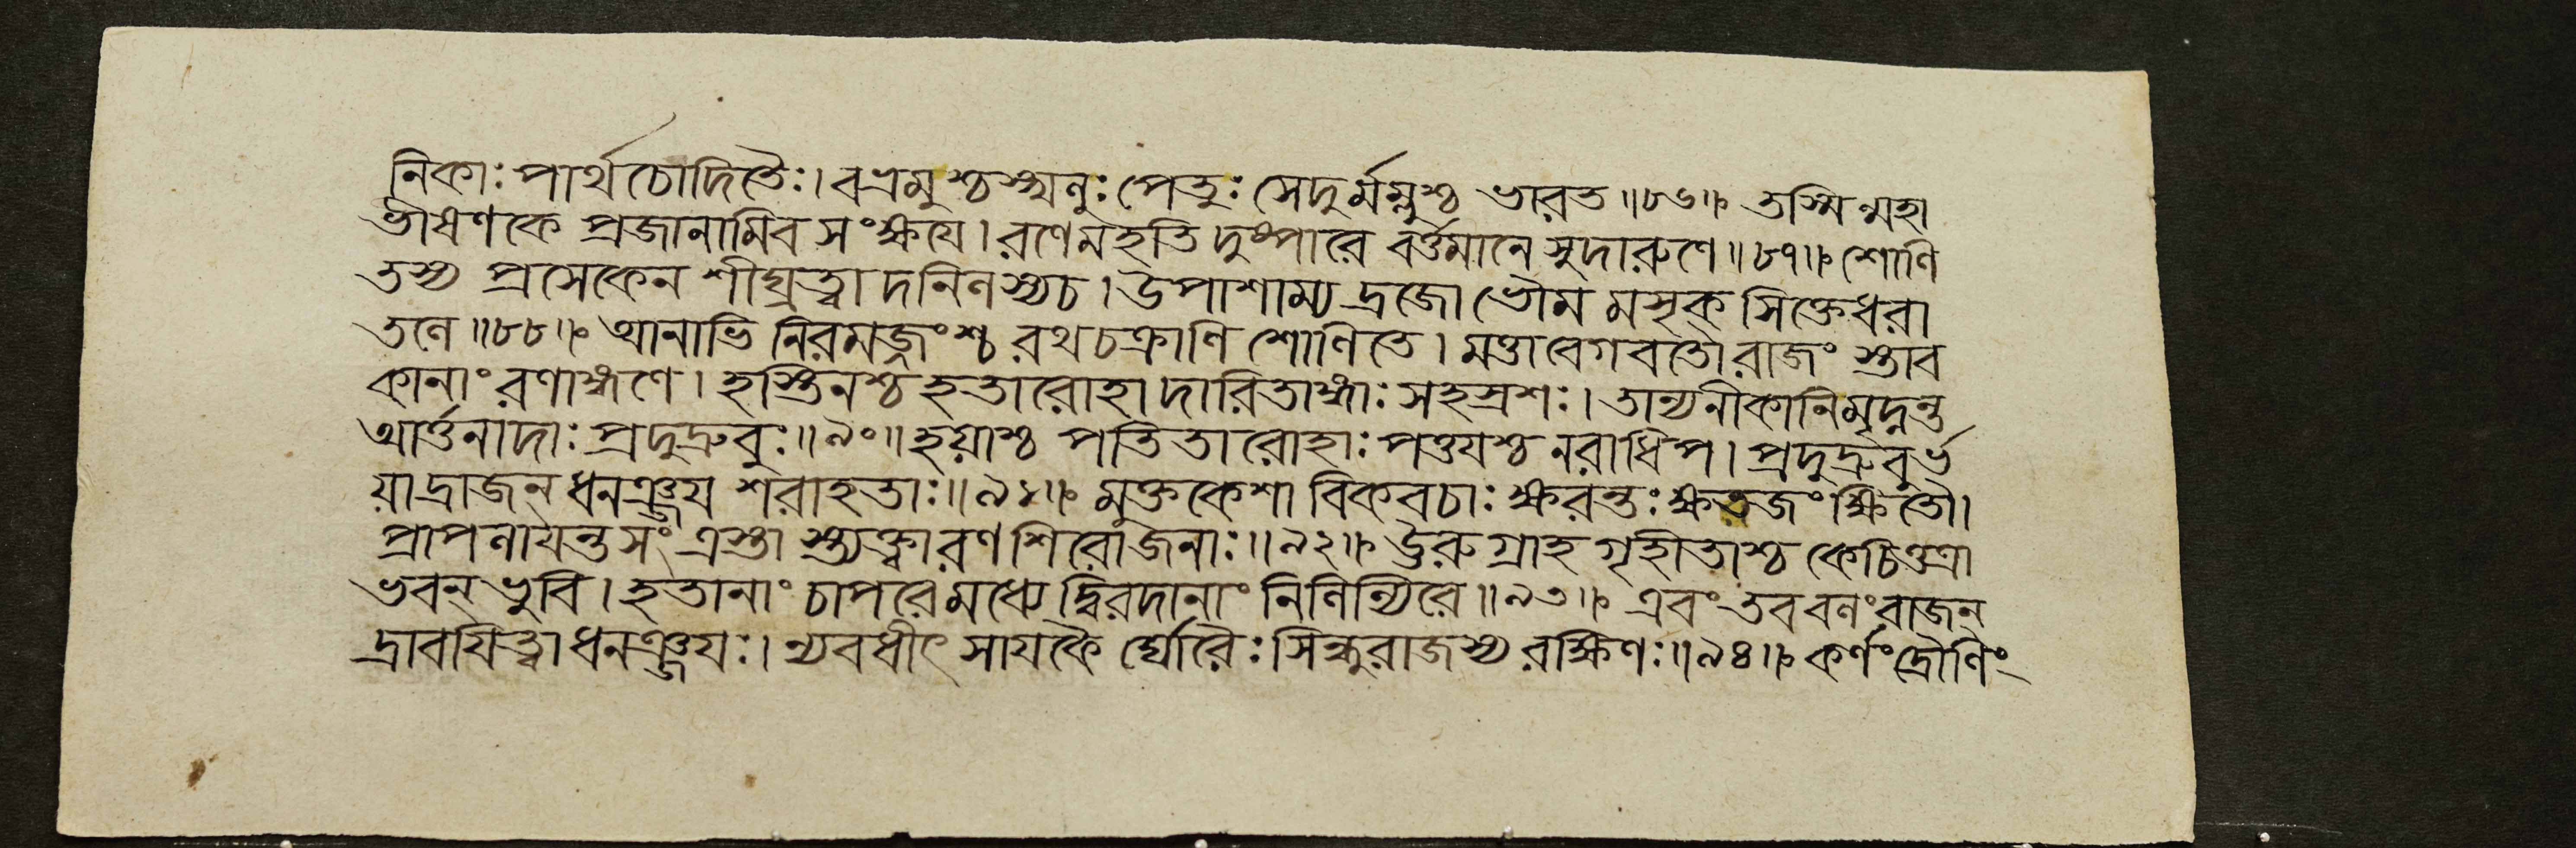 নিকাঃ পার্থচোদিতৈঃ। বভ্রমুশ্চস্খনুঃ পেতুঃ সেদুর্মম্লুশ্চ ভারত॥৮৬॥ তস্মিন্মহা
ভীষণকে প্রজানামিব সংক্ষয়ে। রণেমহতি দুষ্পারে বর্ত্তমানে সুদারুণে॥৮৭॥ শোণি
তস্য প্রসেকেন শীঘ্রত্বাদনিনস্যচ। উপাশাম্যদ্রজো ভৌমমসৃক্সিক্তেধরা
তনে॥৮৮॥ আনাভি নিরমজ্জংশ্চ রথচক্রাণি শোণিতে। মত্তাবেগবতোরাজংস্তাব
কানাং রণাঙ্গণে। হস্তিনশ্চ হতারোহাদারিতাঙ্গাঃ সহস্রশঃ। তান্যনীকানিমৃদ্নন্ত
আর্ত্তনাদাঃ প্রদুদ্রুবুঃ॥৯০॥ হয়াশ্চ পতিতারোহাঃ পত্তয়শ্চ নরাধিপ। প্রদুদ্রুবুর্ভ
য়াদ্রাজন্ ধনঞ্জয় শরাহতাঃ॥৯১॥ মুক্তকেশা বিকবচাঃ ক্ষরন্তঃ ক্ষতজং ক্ষিতৌ।
প্রাপনায়ন্ত সংত্রস্তা স্ত্যক্ত্বারণশিরোজনাঃ॥৯২॥ ঊরুগ্রাহ গৃহীতাশ্চ কেচিত্তত্রা
ভবন্ ভুবি। হতানাং চাপরেমধ্যে দ্বিরদানাং নিনিন্যিরে॥৯৩॥ এবং তববনংরাজন্
দ্রাবয়িত্বা ধনঞ্জয়ঃ। ন্যবধীৎ সায়কৈর্ঘোরৈঃ সিন্ধুরাজস্য রক্ষিণঃ॥৯৪॥ কর্ণংদ্রৌণিং